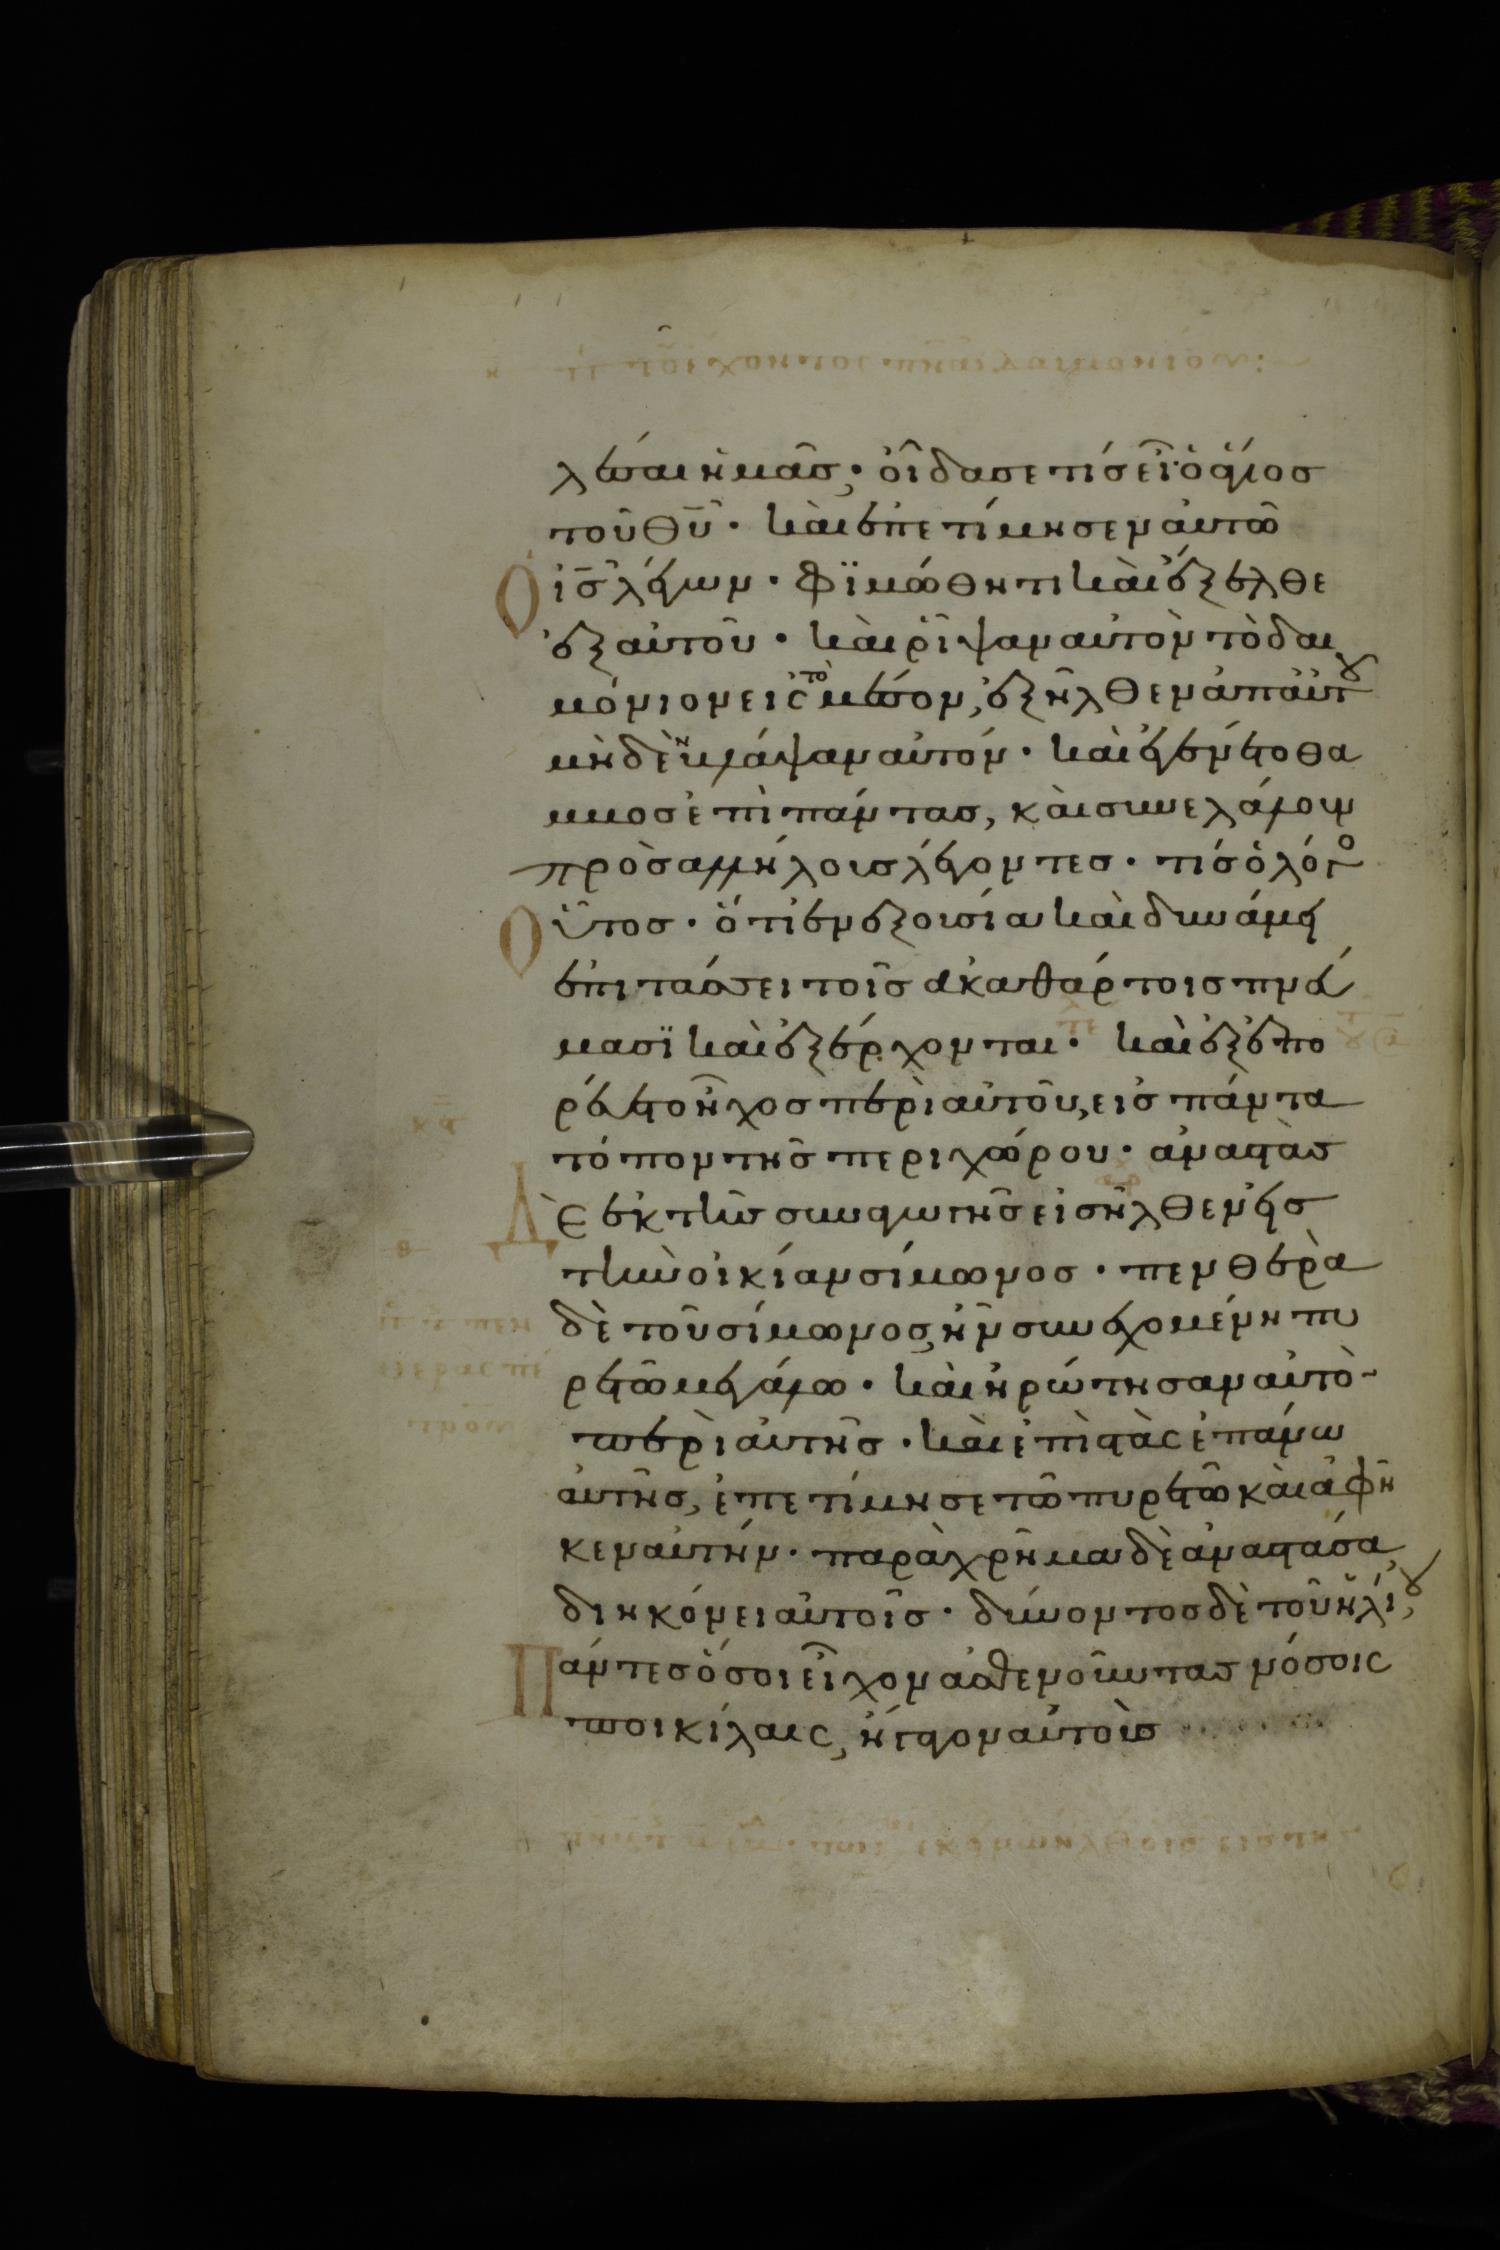 λέσαι ἡμᾶς, οἶδά σε τίς εἶ· ὁ ἅγιος
τοῦ θῡ · καὶ ἐπετίμησεν αὐτῶ
Ὁ ῑς̄ λέγων · φϊμώθητι καὶ ἔξελθε
ἐξ αὐτοῦ · καὶ ῥῖψαν αὐτὸν τὸ δαι
μόνιον εἰς τὸ μέσον, ἐξῆλθεν ἀπ αὐτοῦ
μηδὲν βλάψαν αὐτόν · καὶ ἐγένετο θά
μβος ἐπὶ πάντας, καὶ συνελάλουν
πρὸς ἀλλήλους λέγοντες · τίς ὁ λόγος
Οὗτος · ὅτι ἐν ἐξουσία καὶ δυνάμει
ἐπιτάσσει τοῖς ἀκαθάρτοις πνά
μασϊ καὶ ἐξέρχονται · καὶ ἐξεπο
ρεύετο ἦχος περὶ αὐτοῦ, εἰς πάντα
τόπον τῆς περιχώρου · ἀναστὰς
Δὲ ἐκ τῆς συναγωγῆς εἰσῆλθεν εἰς
τὴν οἰκίαν σίμωνος · πενθερὰ
δὲ τοῦ σίμωνος, ἦν συνεχομένη πυ
ρετῶ μεγάλω · καὶ ἠρώτησαν αὐτὸ-
περὶ αὐτῆς · καὶ ἐπιστὰς ἐπάνω
αὐτῆς, ἐπετίμησε τῶ πυρετῶ καὶ ἀφῆ
κεν αὐτήν · παραχρῆμα δὲ ἀναστᾶσα
διηκόνει αὐτοῖς · δύνοντος δὲ τοῦ ἡλίου,
Πάντες ὅσοι εἶχον ἀσθενοῦντας νόσοις
ποικίλαις, ἤγαγον αὐτοὺς